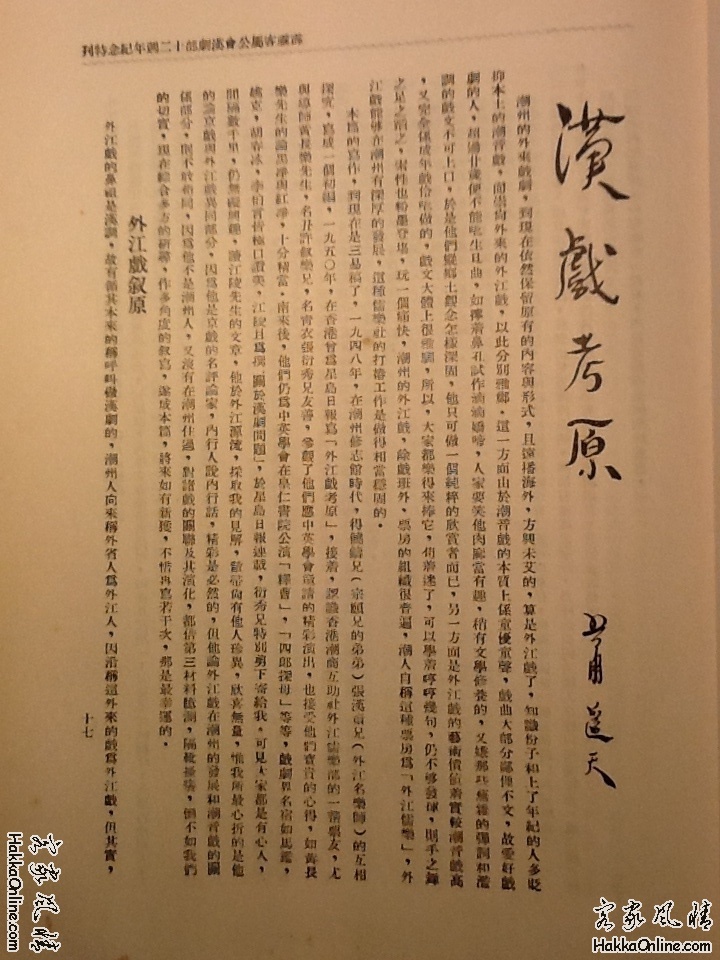 客屬公會漢劇部十二週年紀念特刊
漢戲考原
蕭遙天
潮州的外來戲劇，到現在依然保留原有的內容與形式，且遠播海外，方興未艾的，算是外江戲了，知識份子和上了年紀的人多貶
抑本土的潮音戲，而崇尚外來的外江戲，以此分別雅鄭。這一方面由於潮音戲的本質上係童優童聲，戲曲大部分鄙俚不文，故愛好戲
劇的人，超過廿歲便不能吃生旦曲，如撐着鼻孔試作滴滴嬌啼，人家要笑他肉麻當有趣，稍有文學修養的，又嫌那些蕪雜的彈詞和濫
調的戲文不可上口，於是他們縱鄉土觀念怎樣深固，他只可做一個純粹的欣賞者而已，另一方面是外江戲的藝術價值着實較潮音戲高
，又完全係成年戲伶吃做的，戲文大體上很雅馴，所以，大家都樂得來捧它，捧着迷了，可以學着哼哼幾句，仍不够發揮，則手之舞
之足之蹈之，索性也粉墨登場，玩一個痛快，潮州的外江戲，除戲班外，票房的組織很普遍，潮人自稱這種票房為「外江儒樂」，外
江戲能够在潮州有深厚的發展，這種儒樂社的打樁工作是做得相當穩固的。
本篇的寫作，到現在是三易稿了，一九四八年，在潮州修志館時代，得饒 兄（宗頤兄的弟弟）張漢 兄（外江名樂師）的互相
探究，寫成一個初稿，一九五〇年，在香港曾為星島日報寫「外江戲考原」，接着，認識香港潮商互助社外江儒樂部的一羣票友，尤
與導師黃長樂先生，名丑許叙樂兄，名青衣張衍秀兄友善，參觀了他們應中英學會邀請的精彩演出，也接受他們寶貴的心得，如黃長
樂先生的論黑淨與紅淨，十分精當。南來後，他們仍為中英學會在皇仁書院公演「釋曹」，「四郎探母」等等，戲劇界名宿如馬鑑，
姚克，胡春冰，李伯言皆極口讚美，江陵且為撰「關於漢劇問題」，於星島日報連載，衍秀兄特別剪下寄給我，可見大家都是有心人，
間隔數千里，仍無礙興趣，讀江陵先生的文章，他於外江源流，採取我的見解，敝帚尚有他人珍異，欣喜無量，惟我所最心折的是他
的論京戲與外江戲異同部分，因為他是京戲的名評論家，內行人說內行話，精彩是必然的，但他論外江戲在潮州的發展和潮音戲的關
係部分，則不敢苟同，因為他不是潮州人，又沒有在潮州住過，對諸戲的關聯及其演化，都信第三材料臆測，隔靴搔癢，恒不如我們
的切實，現在綜合多方的研尋，作多角度的叙寫，遂成本篇，將來如有新獲，不惜再寫若干次，那是最幸運的。
外江戲叙原
外江戲的鼻祖是漢調，故有循其本來的稱呼叫做漢劇的，潮州人向來稱外省人為外江人，因沿稱這外來的戲為外江戲，但其實，
十七
客家風情
HakkaOnline.com
客家風情
HakkaOnline.com